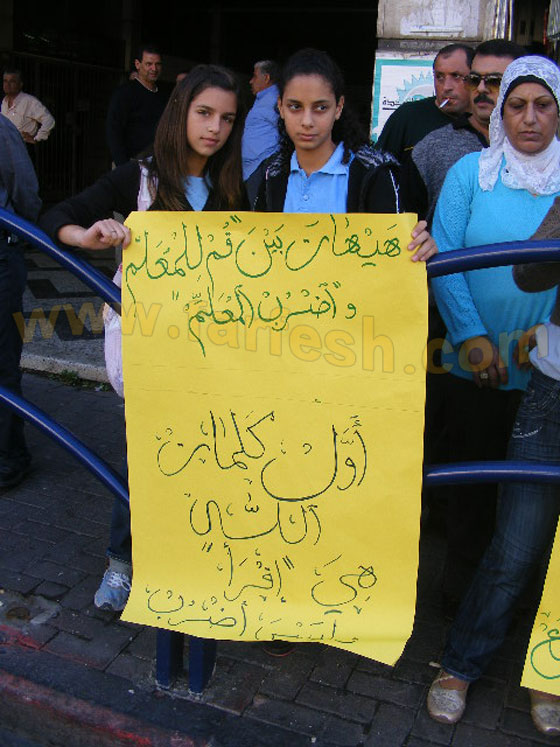 هَيْهَاتَ بَيْنَ "قُمْ لِلْمُعَلِّمْ"
وَ"اضْرِبْ المُعَلِّمْ"
أَوَّلُ كَلِمَاتِ
اللَّهِ
هِيَ "إِقْرَأْ"
وَلَيْسَ اضْرِبْ
www.farfesh.com